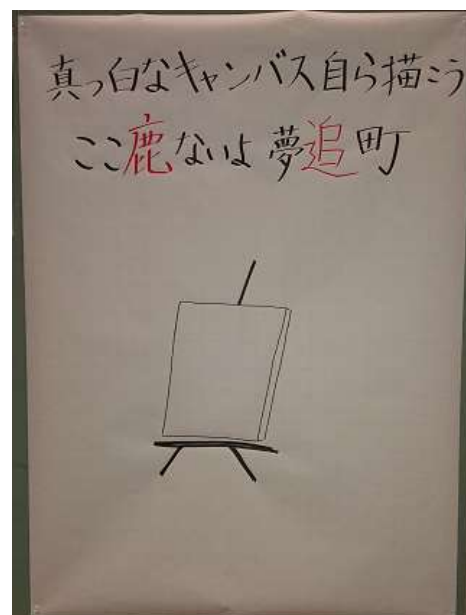 真っ白なキャンバス自ら描こう
ここ鹿ないよ夢追町